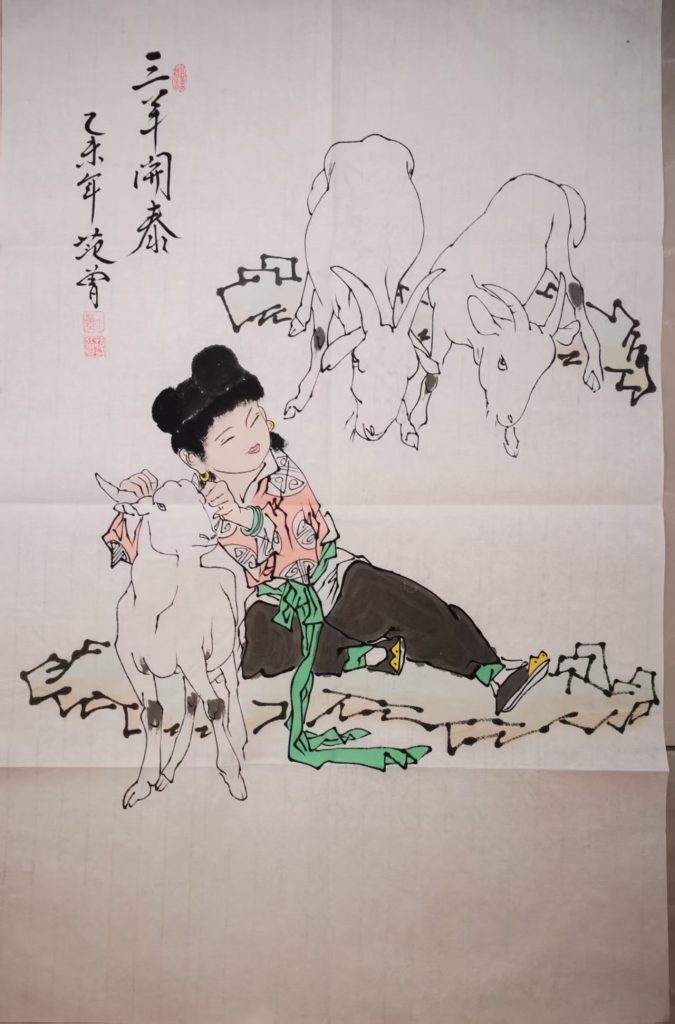 三羊開泰
乙未年 范曾